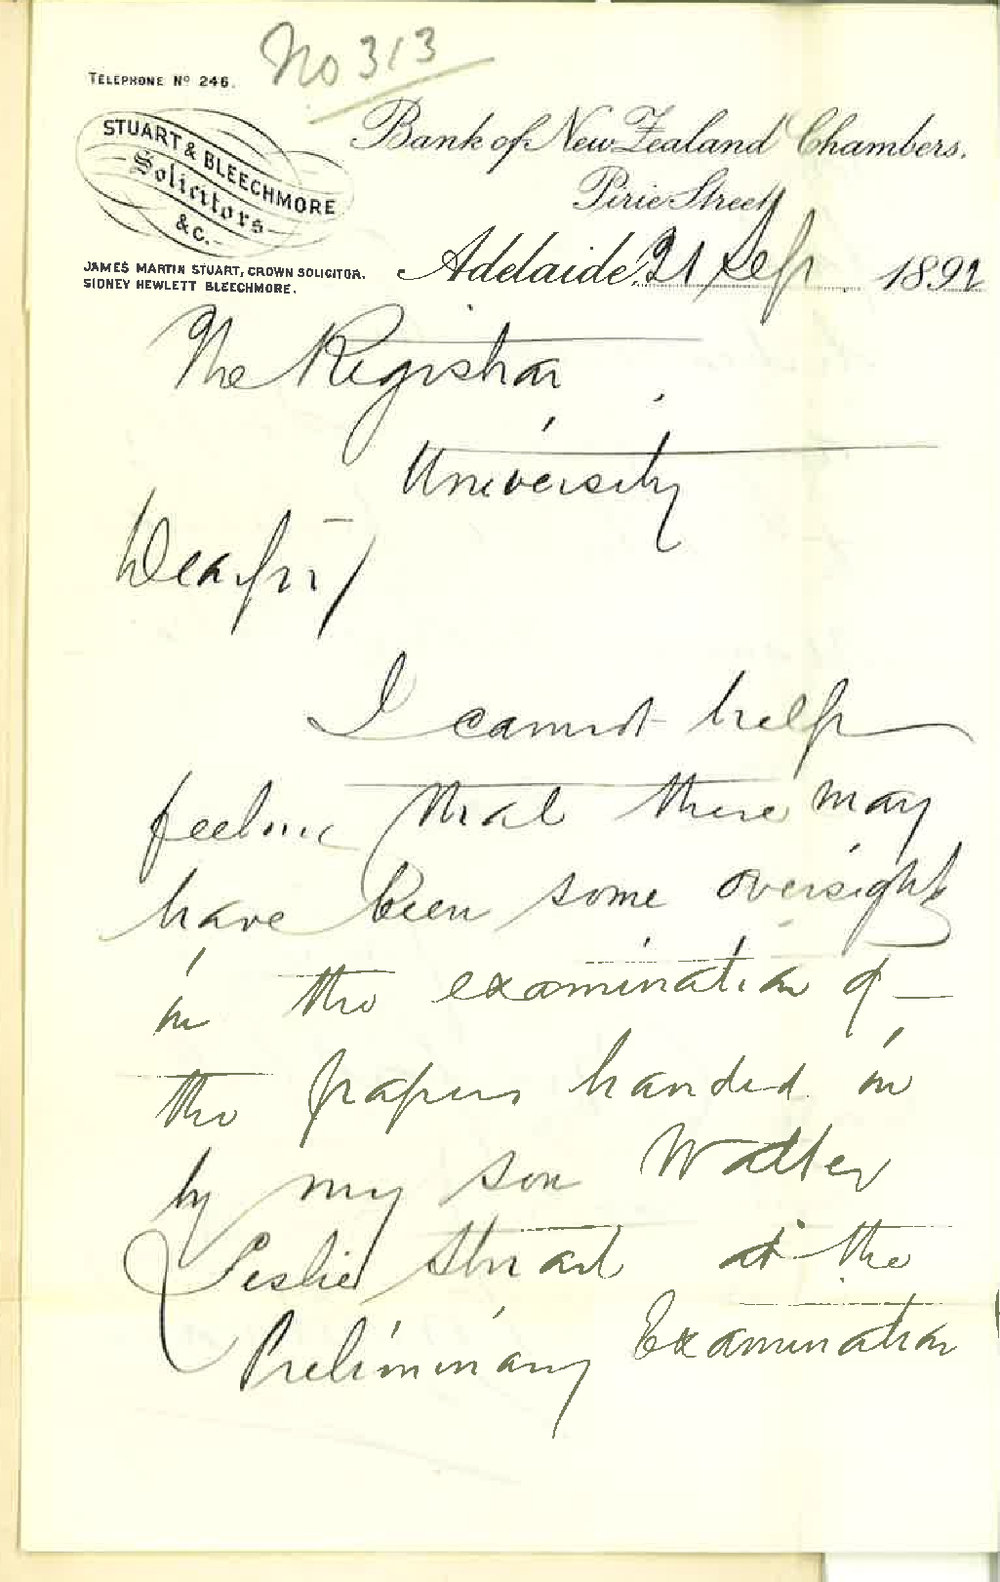 No 313
TELEPHONE No 246.
STUART & BLEECHMORE
Solicitors
&C.
JAMES MARTIN STUART, CROWN SOLICITOR.
SIDNEY HEWLETT BLEECHMORE.
Bank of New Zealand Chambers.
Pirie Street
Adelaide, 21 Sep 1892
The Registrar
University
Dear Sir/
I cannot help
feeling that there may
have been some oversight
in the examination of
the papers handed in
by my son Walter
Leslie Stuart at the
Preliminary Examination